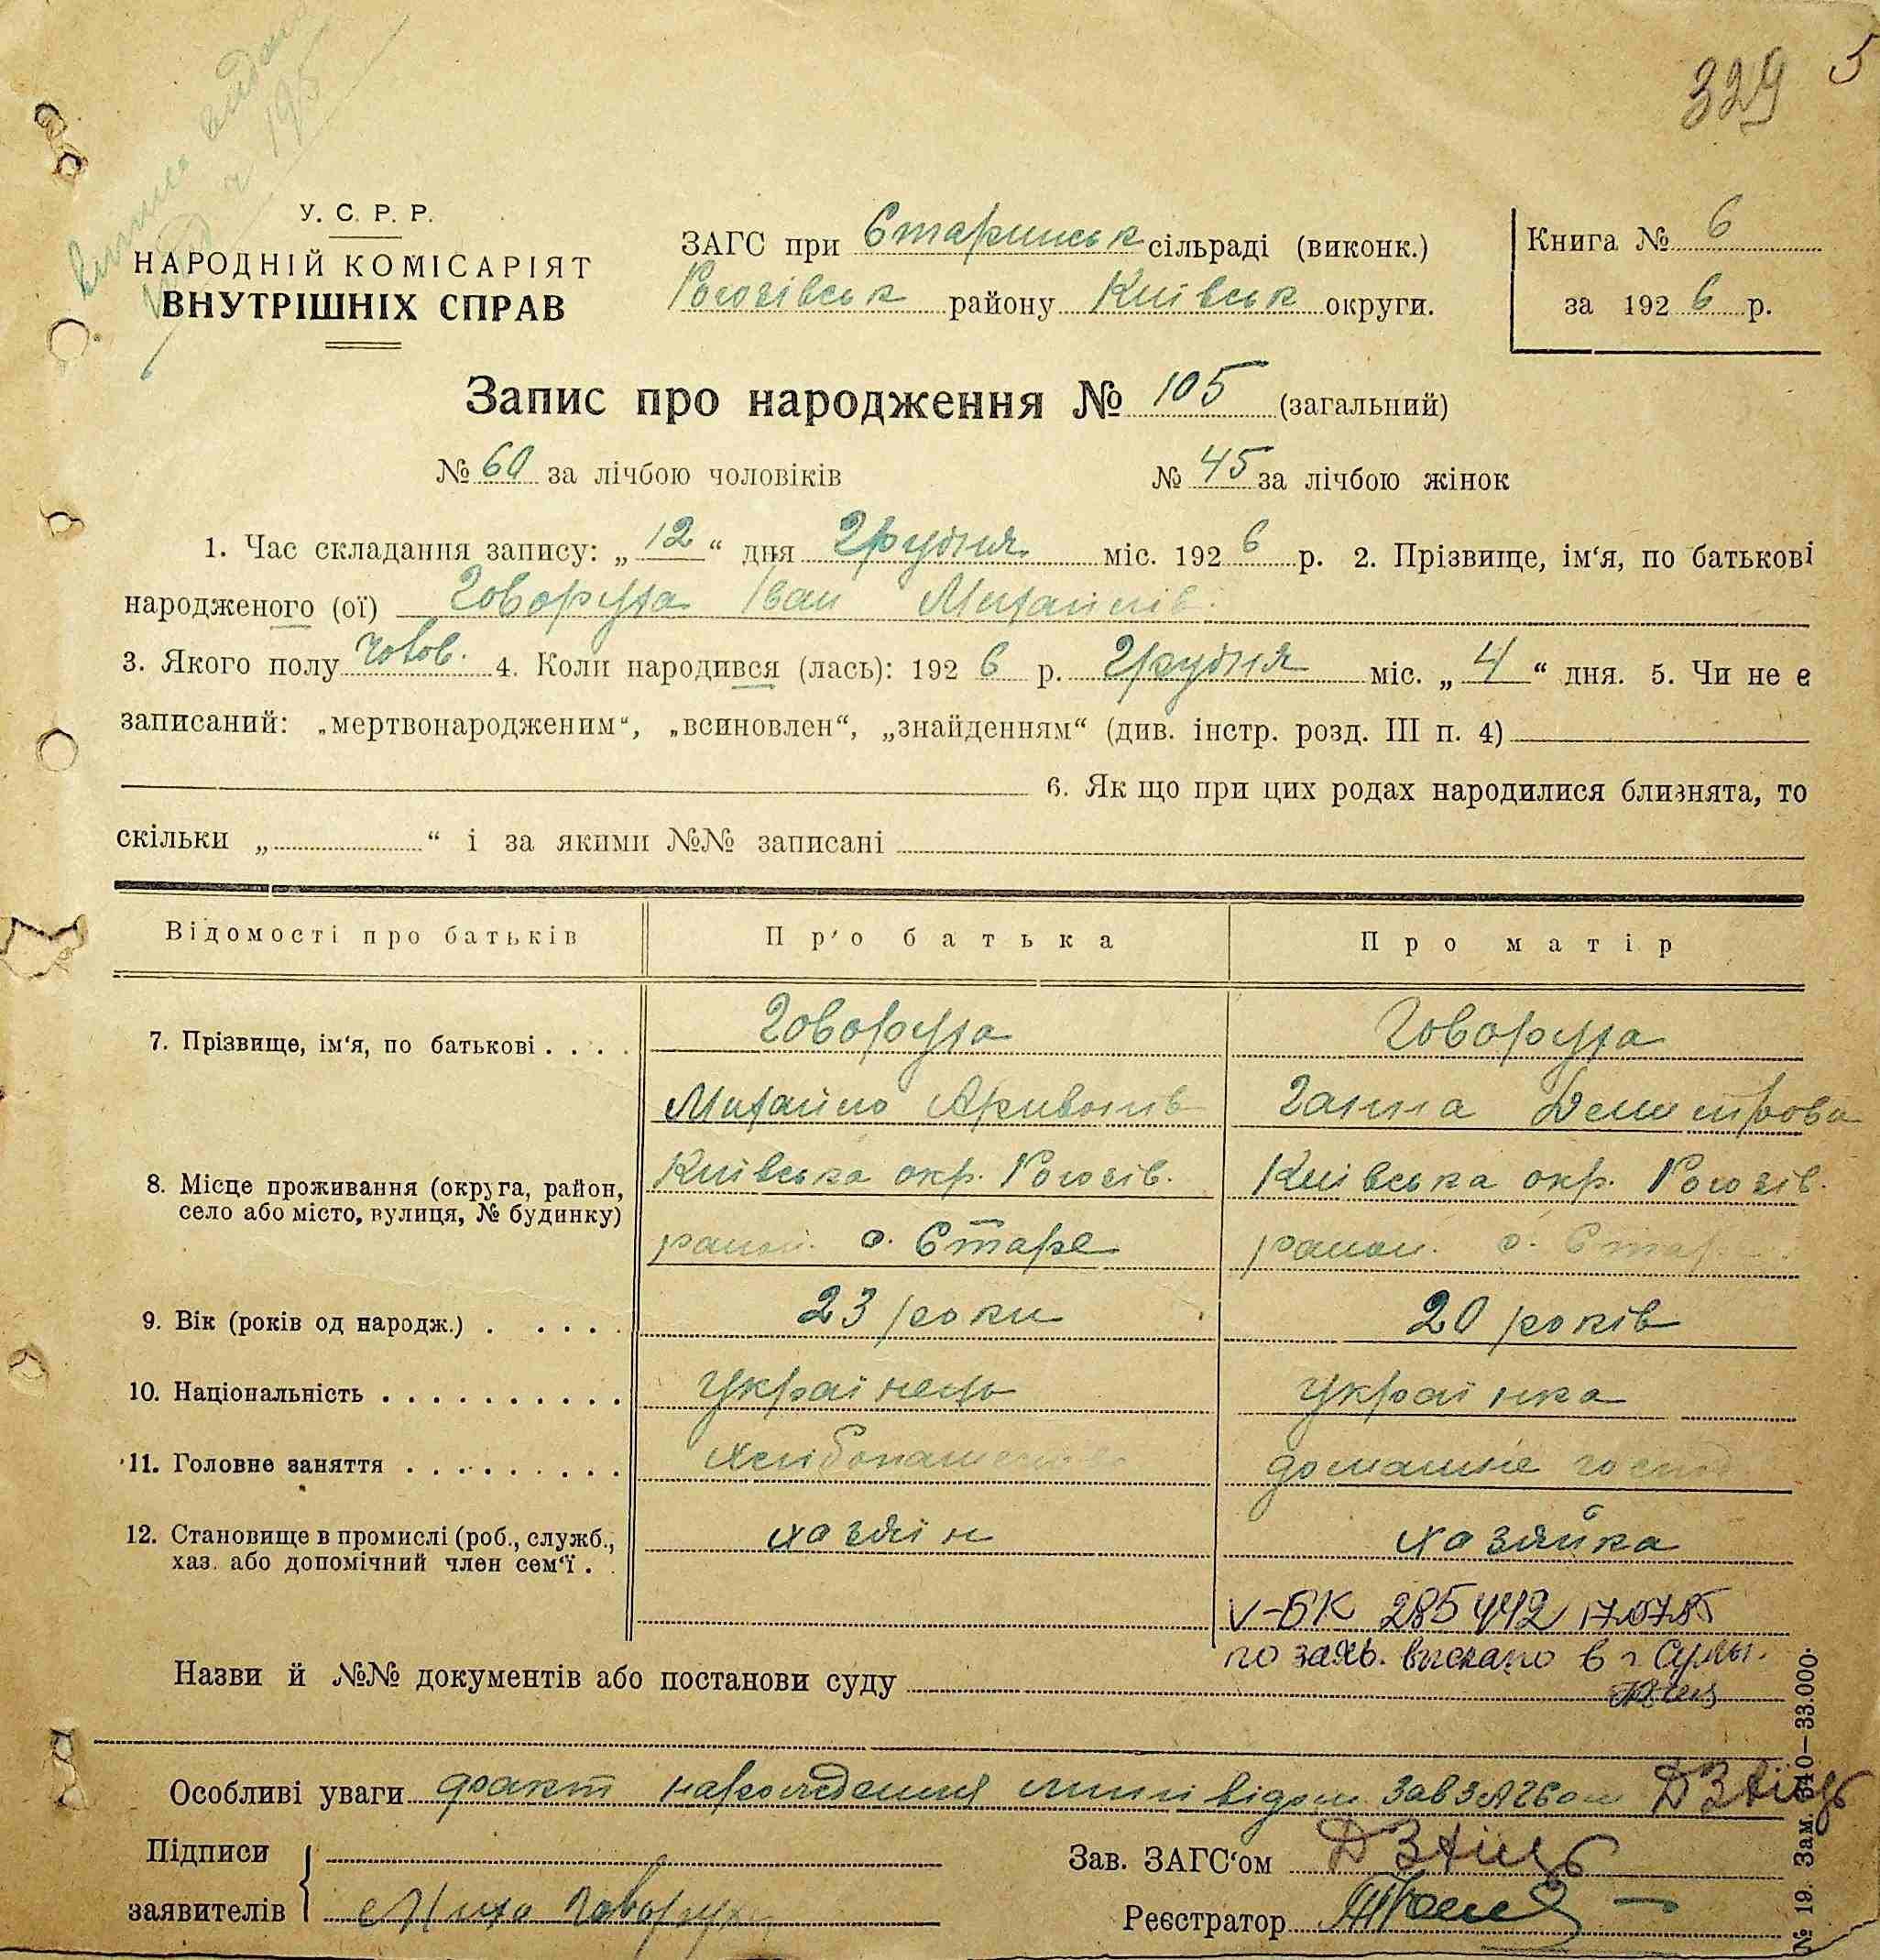 329 5
У. С. Р. Р.
НАРОДНІЙ КОМІСАРІЯТ
ВНУТРІШНІХ СПРАВ
ЗАГС при Старинськ сільраді (виконк.)
Рогозівськ району Київськ округи.
Книга № 6
за 1926 р.
Запис про народження № 105 (загальний)
№ 60 за лічбою чоловіків № 45 за лічбою жінок
1. Час складання запису: „12“ дня Грудня міс. 1926 р. 2. Прізвище, ім‘я, по батькові
народженого (ої) Говоруха Іван Михайлів.
3. Якого полу чолов. 4. Коли народився (лась): 1926 р. Грудня міс. „4“ дня. 5. Чи не є
записаний: „мертвонародженим“, „всиновлен“, „знайденням“ (див. інстр. розд. III п. 4)
6. Як що при цих родах народилися близнята, то
скільки „ “ і за якими №№ записані
Відомості про батьків Про батька Про матір
7. Прізвище, ім‘я, по батькові . . . . Говоруха Говоруха
Михайло Ганна
8. Місце проживання (округа, район, село або місто, вулиця, № будинку) Київська окр. Рогозів. Київська окр. Рогозів.
район. с. Старе район. с. Стар
9. Вік (років од народж.) . . . . . 23 роки 20 років
10. Національність . . . . . . . . . . Українець Українка
11. Головне заняття . . . . . . . . . хлібопашество домашнє господ
12. Становище в промислі (роб., служб., хаз. або допомічний член сем‘ї . хазяїн хазяйка
V-БК 285442 17.07.85
по заяв. выслано в г. Сумы.
Назви й №№ документів або постанови суду
Особливі уваги факт народження мині відом Зав ЗАГСом
Підписи
заявителів Говорух
Зав. ЗАГС‘ом
Реєстратор
№ 19. Зам. 610–33.000.